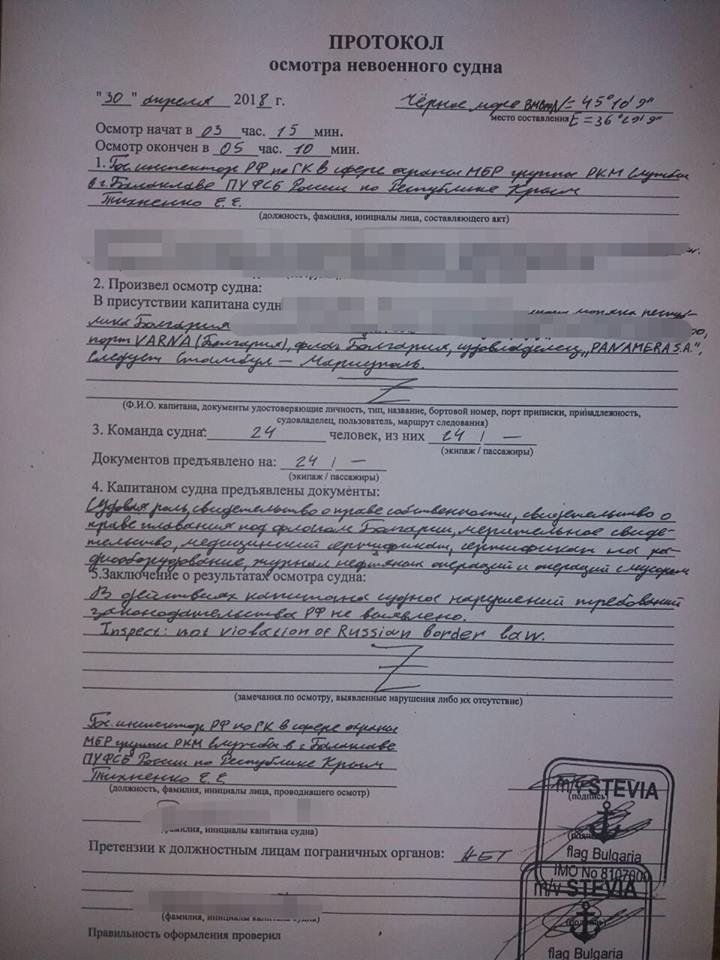 ПРОТОКОЛ
осмотра невоенного судна
"30" апреля 2018 г.
Чёрное море N=45°10'9"
E=36°29'9"
место составления
Осмотр начат в 03 час. 15 мин.
Осмотр окончен в 05 час. 10 мин.
1. Гос. инспектор РФ по ГК в сфере охраны МБР группы РКМ Службы
в г. Балаклаве ПУ ФСБ России по Республике Крым
Тихненко Е.Е.
(должность, фамилия, инициалы лица, составляющего акт)
2. Произвел осмотр судна:
В присутствии капитана судн
лика Болгария
порт VARNA (Болгария), флаг Болгария, судовладелец "PANAMERA S.A.",
следует Стамбул – Мариуполь.
(Ф.И.О. капитана, документы удостоверяющие личность, тип, название, бортовой номер, порт приписки, принадлежность,
судовладелец, пользователь, маршрут следования)
3. Команда судна: 24 человек, из них 24 / —
(экипаж / пассажиры)
Документов предъявлено на: 24 / —
(экипаж / пассажиры)
4. Капитаном судна предъявлены документы:
Судовая роль, свидетельство о праве собственности, свидетельство о
праве плавания под флагом Болгарии, мерительное свиде-
тельство, медицинский сертификат, сертификат на ра-
диооборудование, журнал нефтяных операций и операций с мусором
5.Заключение о результатах осмотра судна:
В действиях капитана судна нарушений требований
законодательства РФ не выявлено.
Inspect: not violation of Russian border law.
(замечания по осмотру, выявленные нарушения либо их отсутствие)
Гос. инспектор РФ по ГК в сфере охраны
МБР группы РКМ Службы в г. Балаклаве
ПУ ФСБ России по Республике Крым
Тихненко Е.Е.
(должность, фамилия, инициалы лица, проводившего осмотр)
(подпись)
амилия, инициалы капитана судна)
Претензии к должностным лицам пограничных органов: НЕТ
m/v STEVIA
flag Bulgaria
IMO No 8107600
m/v STEVIA
flag Bulgaria
(фамилия, инициалы капитана судна)
Правильность оформления проверил